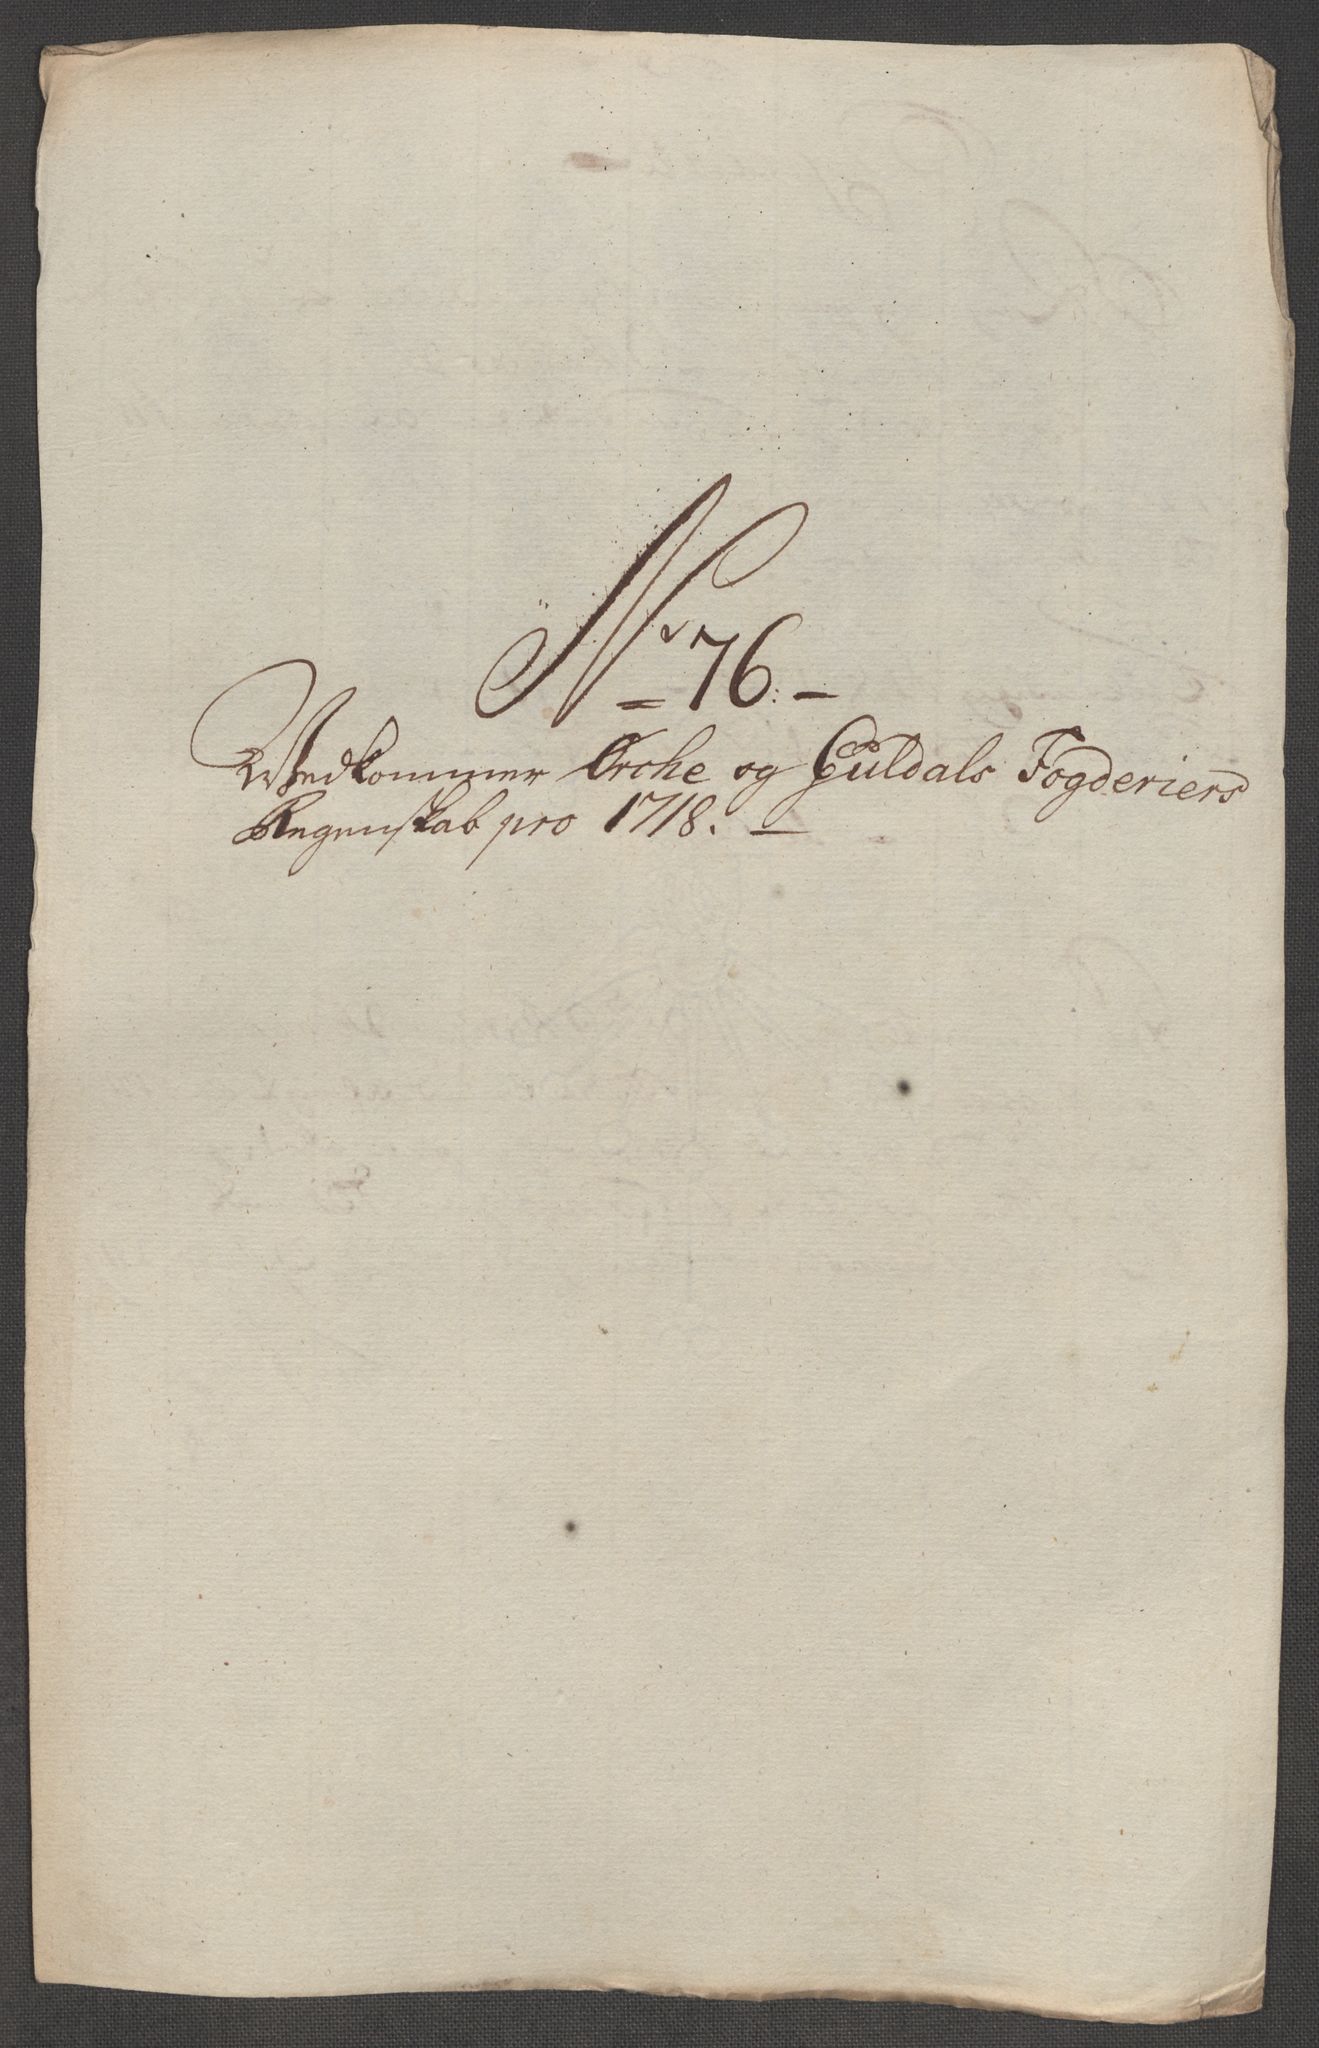 Nr 76. –
Wedkommer Orche og Guldals Fogderiers
Regenskab pro 1718. –